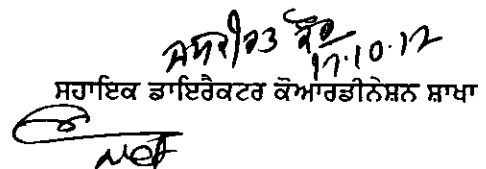 ਜਸਜੀਤ ਕੌਰ
17.10.12
ਸਹਾਇਕ ਡਾਇਰੈਕਟਰ ਕੋਆਰਡੀਨੇਸ਼ਨ ਸ਼ਾਖਾ